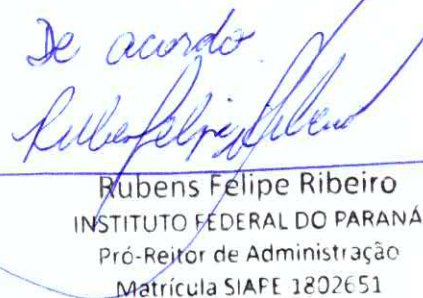 De acordo
Rubens Felipe Ribeiro
Rubens Felipe Ribeiro
INSTITUTO FEDERAL DO PARANÁ
Pró-Reitor de Administração
Matrícula SIAPE 1802651